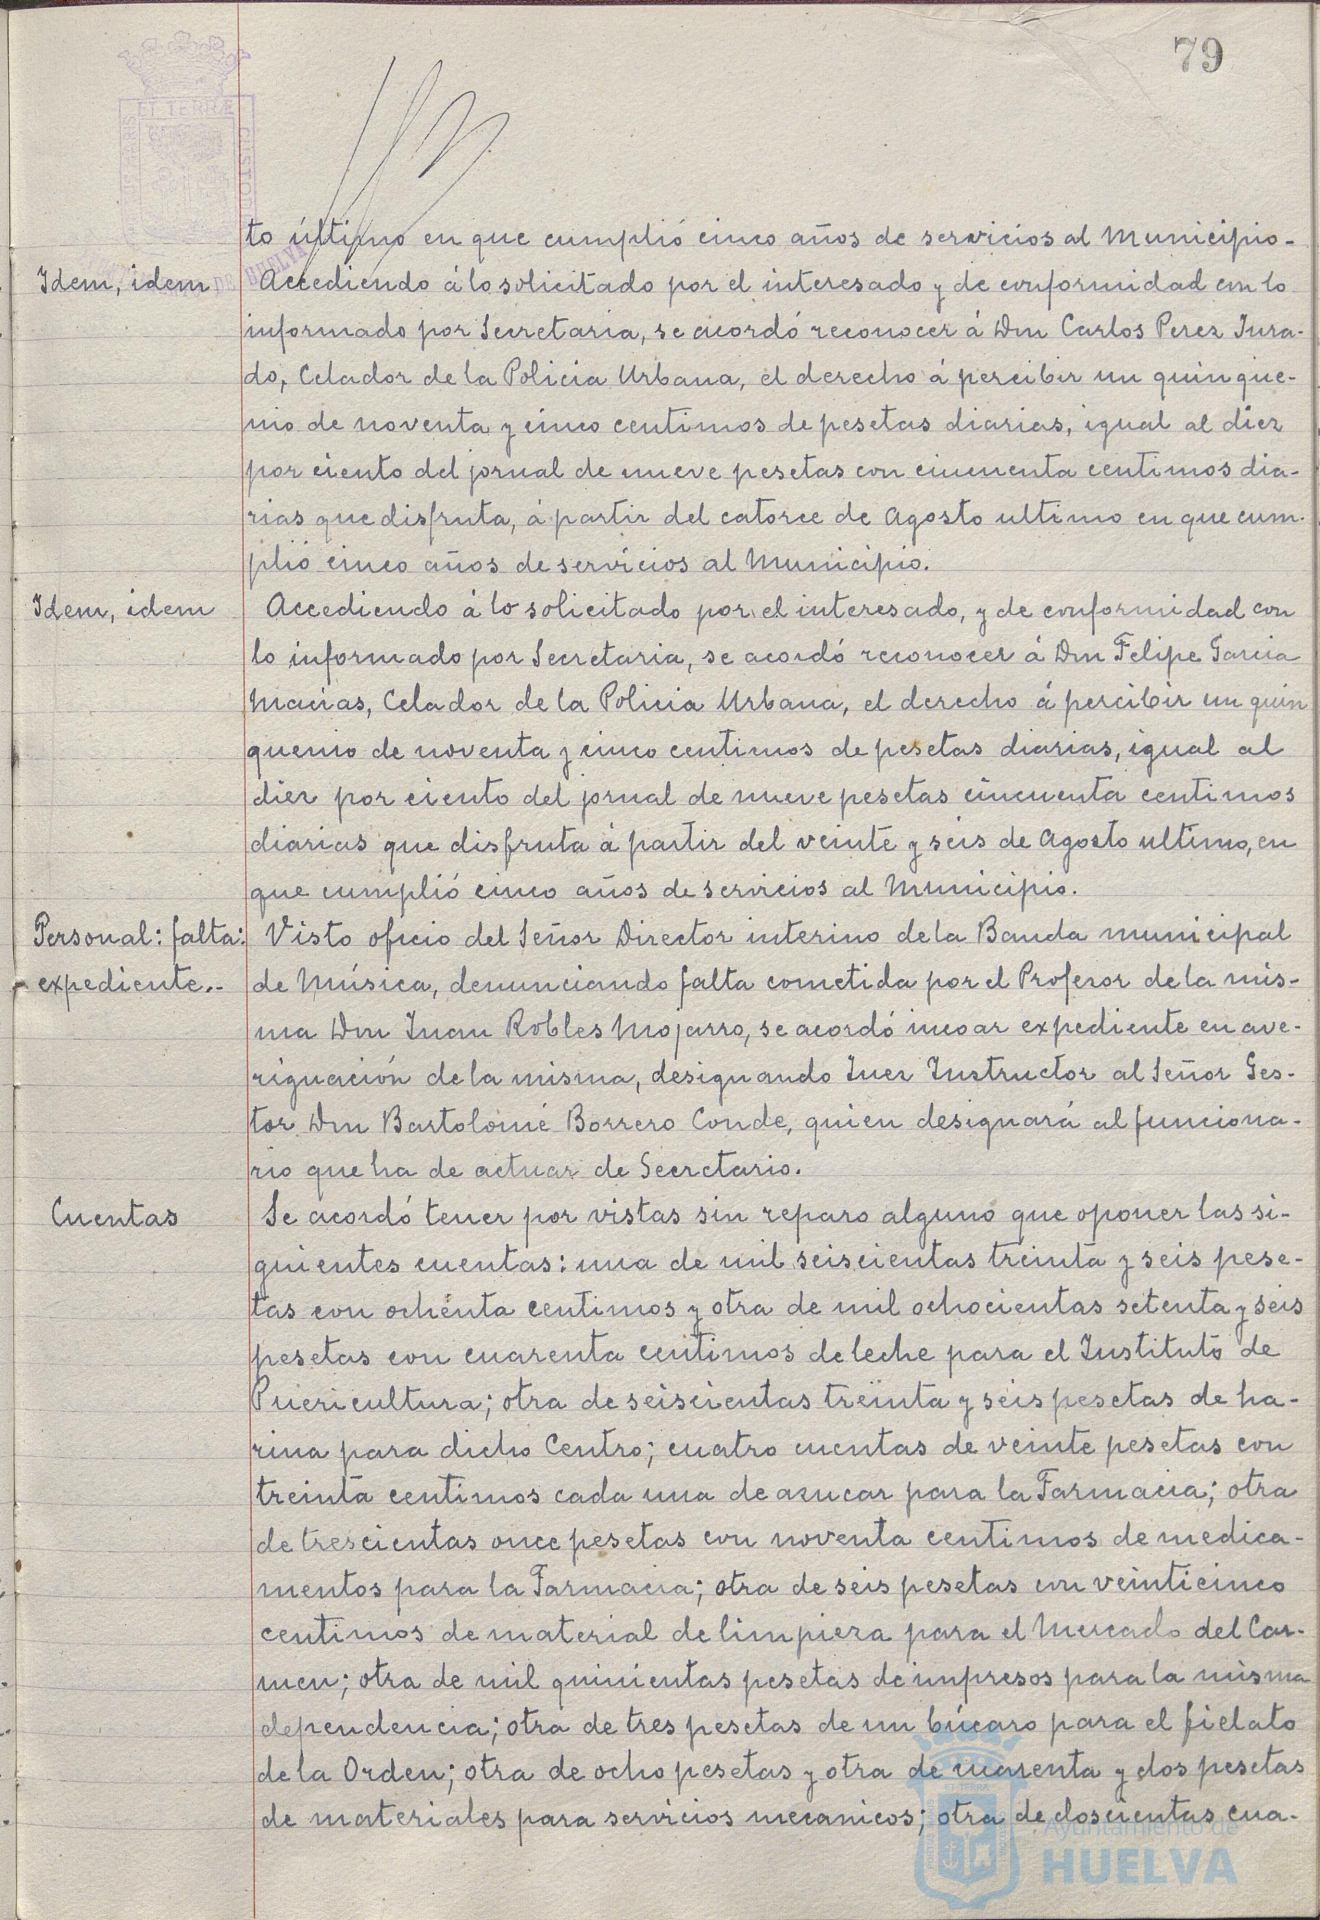 79
ET TERRÆ
CUSTO
DE HUELVA
to último en que cumplió cinco años de servicios al Municipio.-
Idem, idem
Accediendo á lo solicitado por el interesado y de conformidad con lo
informado por Secretaria, se acordó reconocer á Don Carlos Perez Jura-
do, Celador de la Policia Urbana, el derecho á percibir un quinque-
nio de noventa y cinco centimos de pesetas diarias, igual al diez
por ciento del jornal de nueve pesetas con cincuenta centimos dia-
rias que disfruta, á partir del catorce de Agosto ultimo en que cum-
plió cinco años de servicios al Municipio.
Idem, idem
Accediendo á lo solicitado por el interesado, y de conformidad con
lo informado por Secretaria, se acordó reconocer á Don Felipe Garcia
Macias, Celador de la Policia Urbana, el derecho á percibir un quin
quenio de noventa y cinco centimos de pesetas diarias, igual al
diez por ciento del jornal de nueve pesetas cincuenta centimos
diarias que disfruta á partir del veinte y seis de Agosto ultimo, en
que cumplió cinco años de servicios al Municipio.
Personal: falta:
expediente.-
Visto oficio del Señor Director interino de la Banda municipal
de Música, denunciando falta cometida por el Profesor de la mis-
ma Don Juan Robles Mojarro, se acordó incoar expediente en ave-
riguación de la misma, designando Juez Instructor al Señor Ges-
tor Don Bartolomé Borrero Conde, quien designará al funciona-
rio que ha de actuar de Secretario.
Cuentas
Se acordó tener por vistas sin reparo alguno que oponer las si-
guientes cuentas: una de mil seiscientas treinta y seis pese-
tas con ochenta centimos y otra de mil ochocientas setenta y seis
pesetas con cuarenta centimos de leche para el Instituto de
Puericultura; otra de seiscientas treinta y seis pesetas de ha-
rina para dicho Centro; cuatro cuentas de veinte pesetas con
treinta centimos cada una de azucar para la Farmacia; otra
de trescientas once pesetas con noventa centimos de medica-
mentos para la Farmacia; otra de seis pesetas con veinticinco
centimos de material de limpieza para el Mercado del Car-
men; otra de mil quinientas pesetas de impresos para la misma
dependencia; otra de tres pesetas de un búcaro para el fielato
de la Orden; otra de ocho pesetas y otra de cuarenta y dos pesetas
de materiales para servicios mecanicos; otra de doscientas cua-
Ayuntamiento de
HUELVA